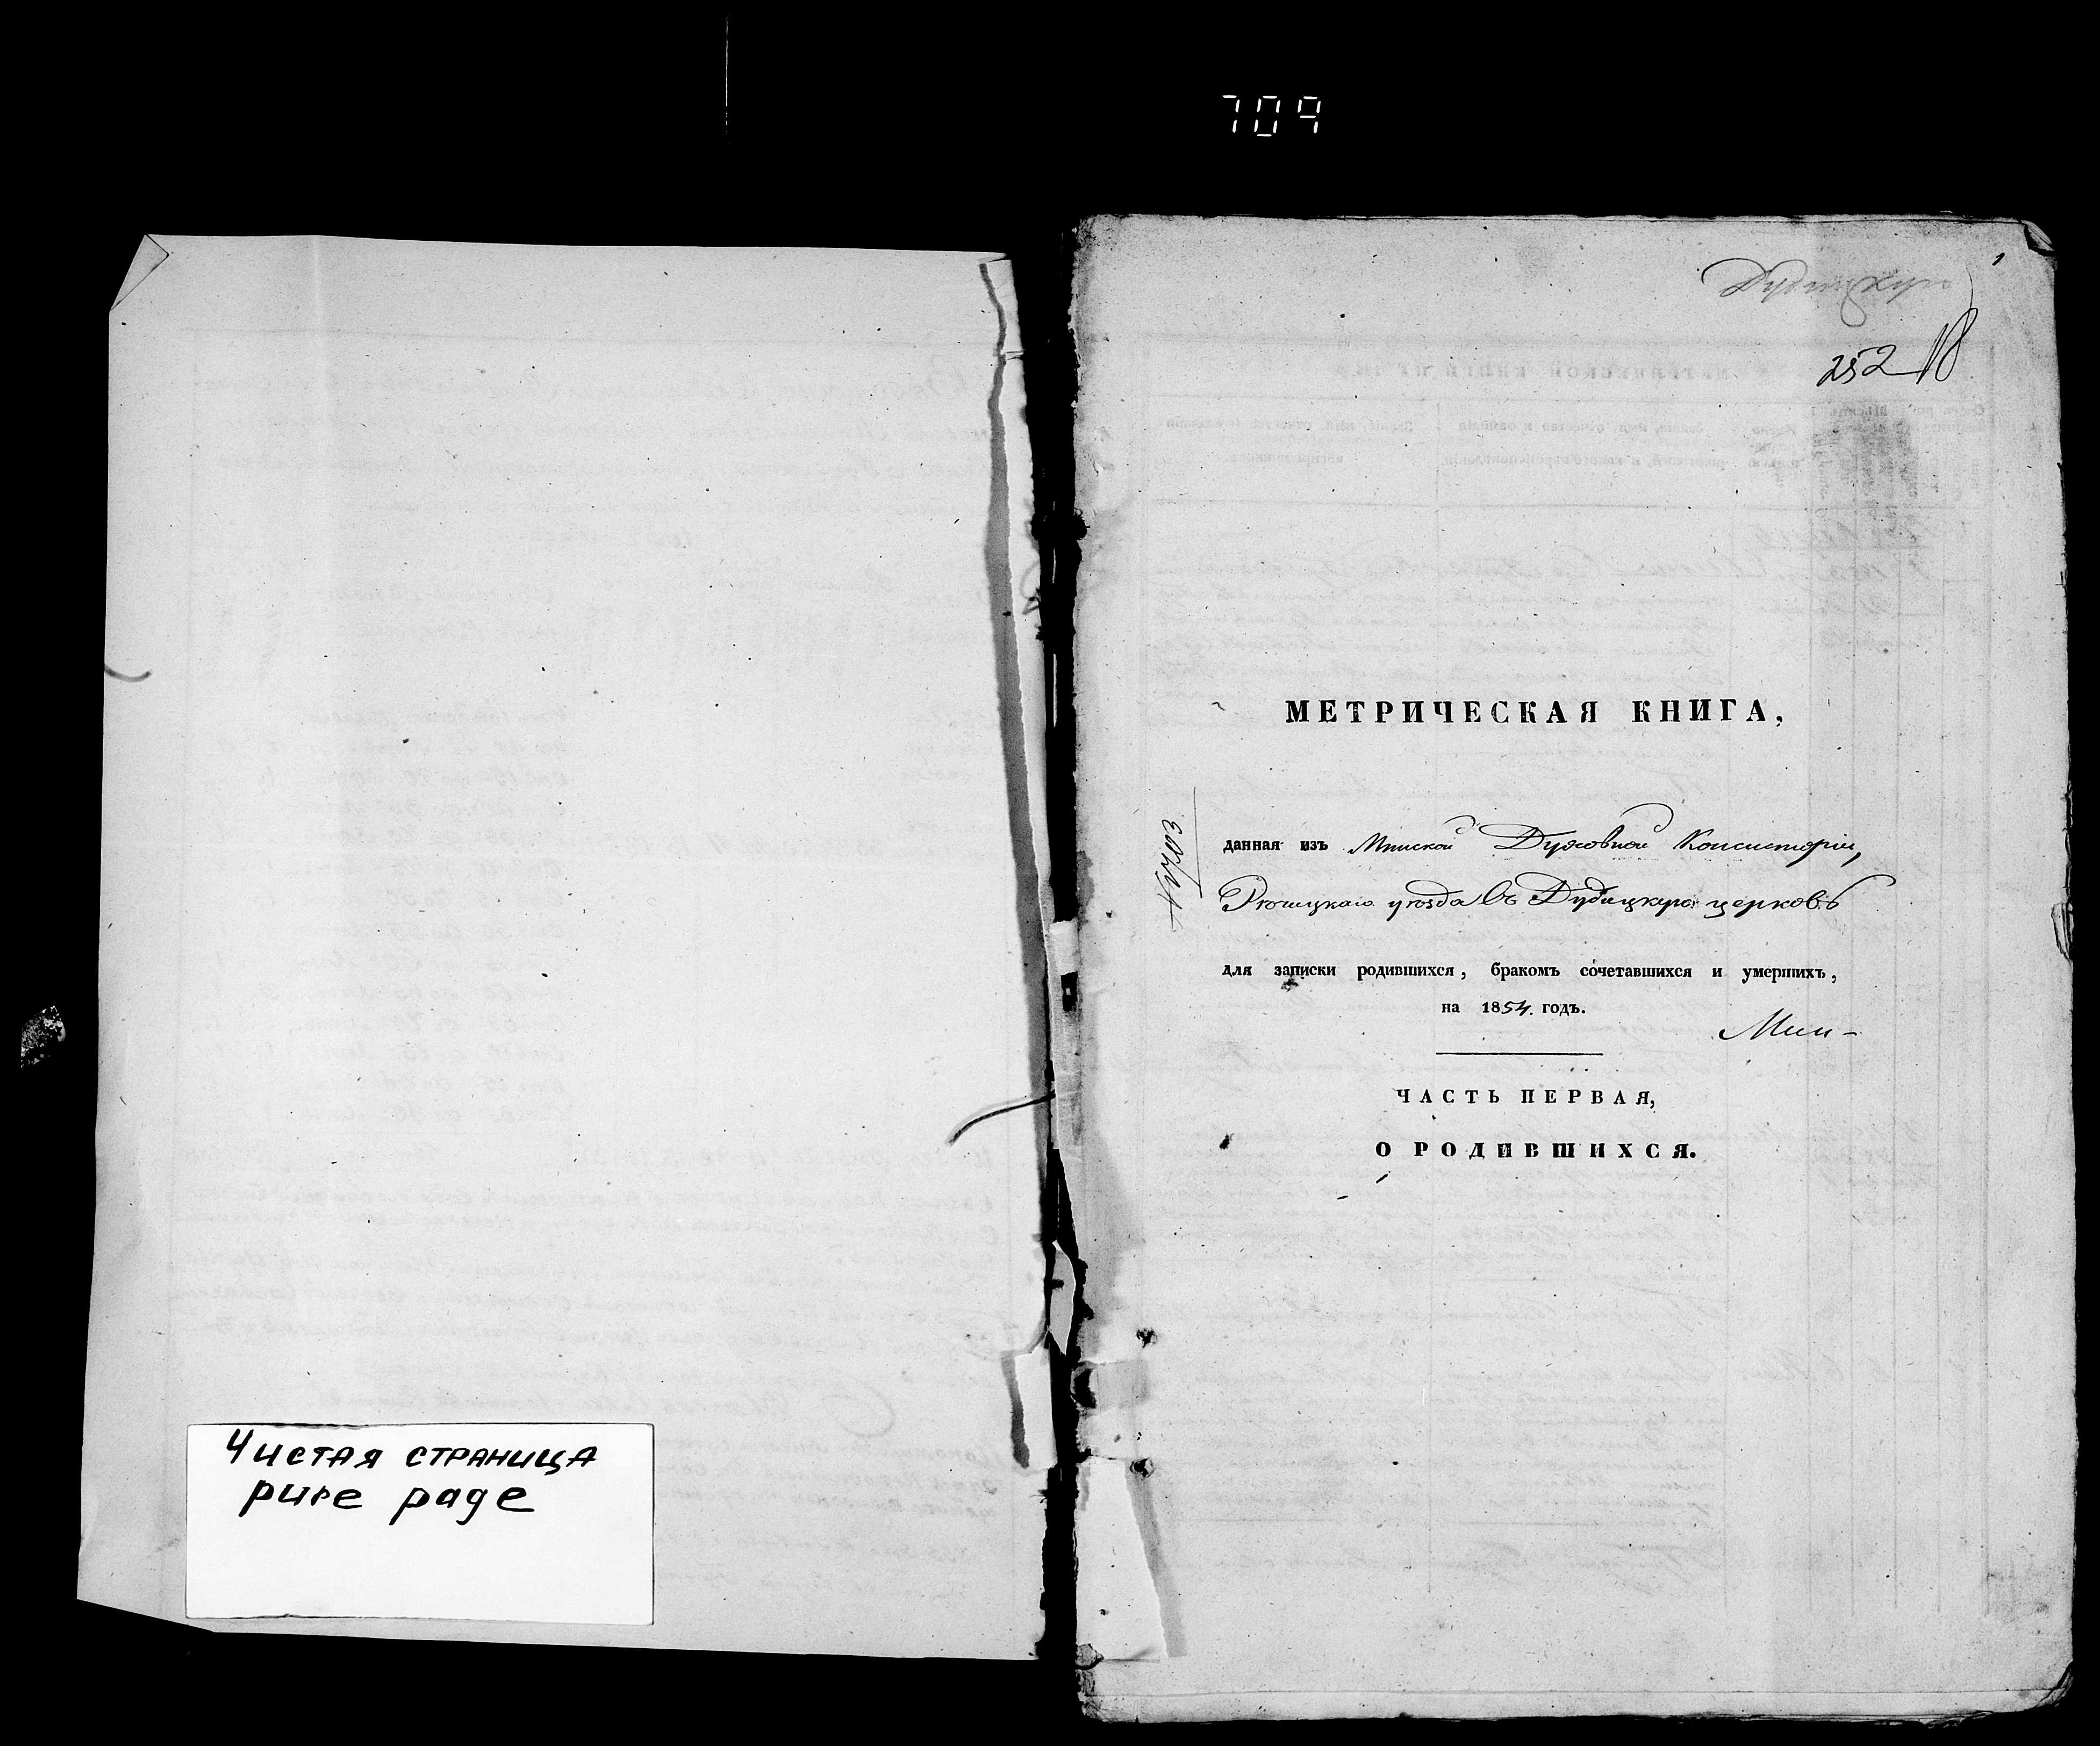 709
Чистая страница
pure page
1
Дудицкую
252 18
МЕТРИЧЕСКАЯ КНИГА,
данная изъ Минской Духовной Консисторіи,
уѣзда въ Дудицкую церковь
для записки родившихся, бракомъ сочетавшихся и умершихъ,
на 1854. годъ.
Мин-
ЧАСТЬ ПЕРВАЯ,
О РОДИВШИХСЯ.